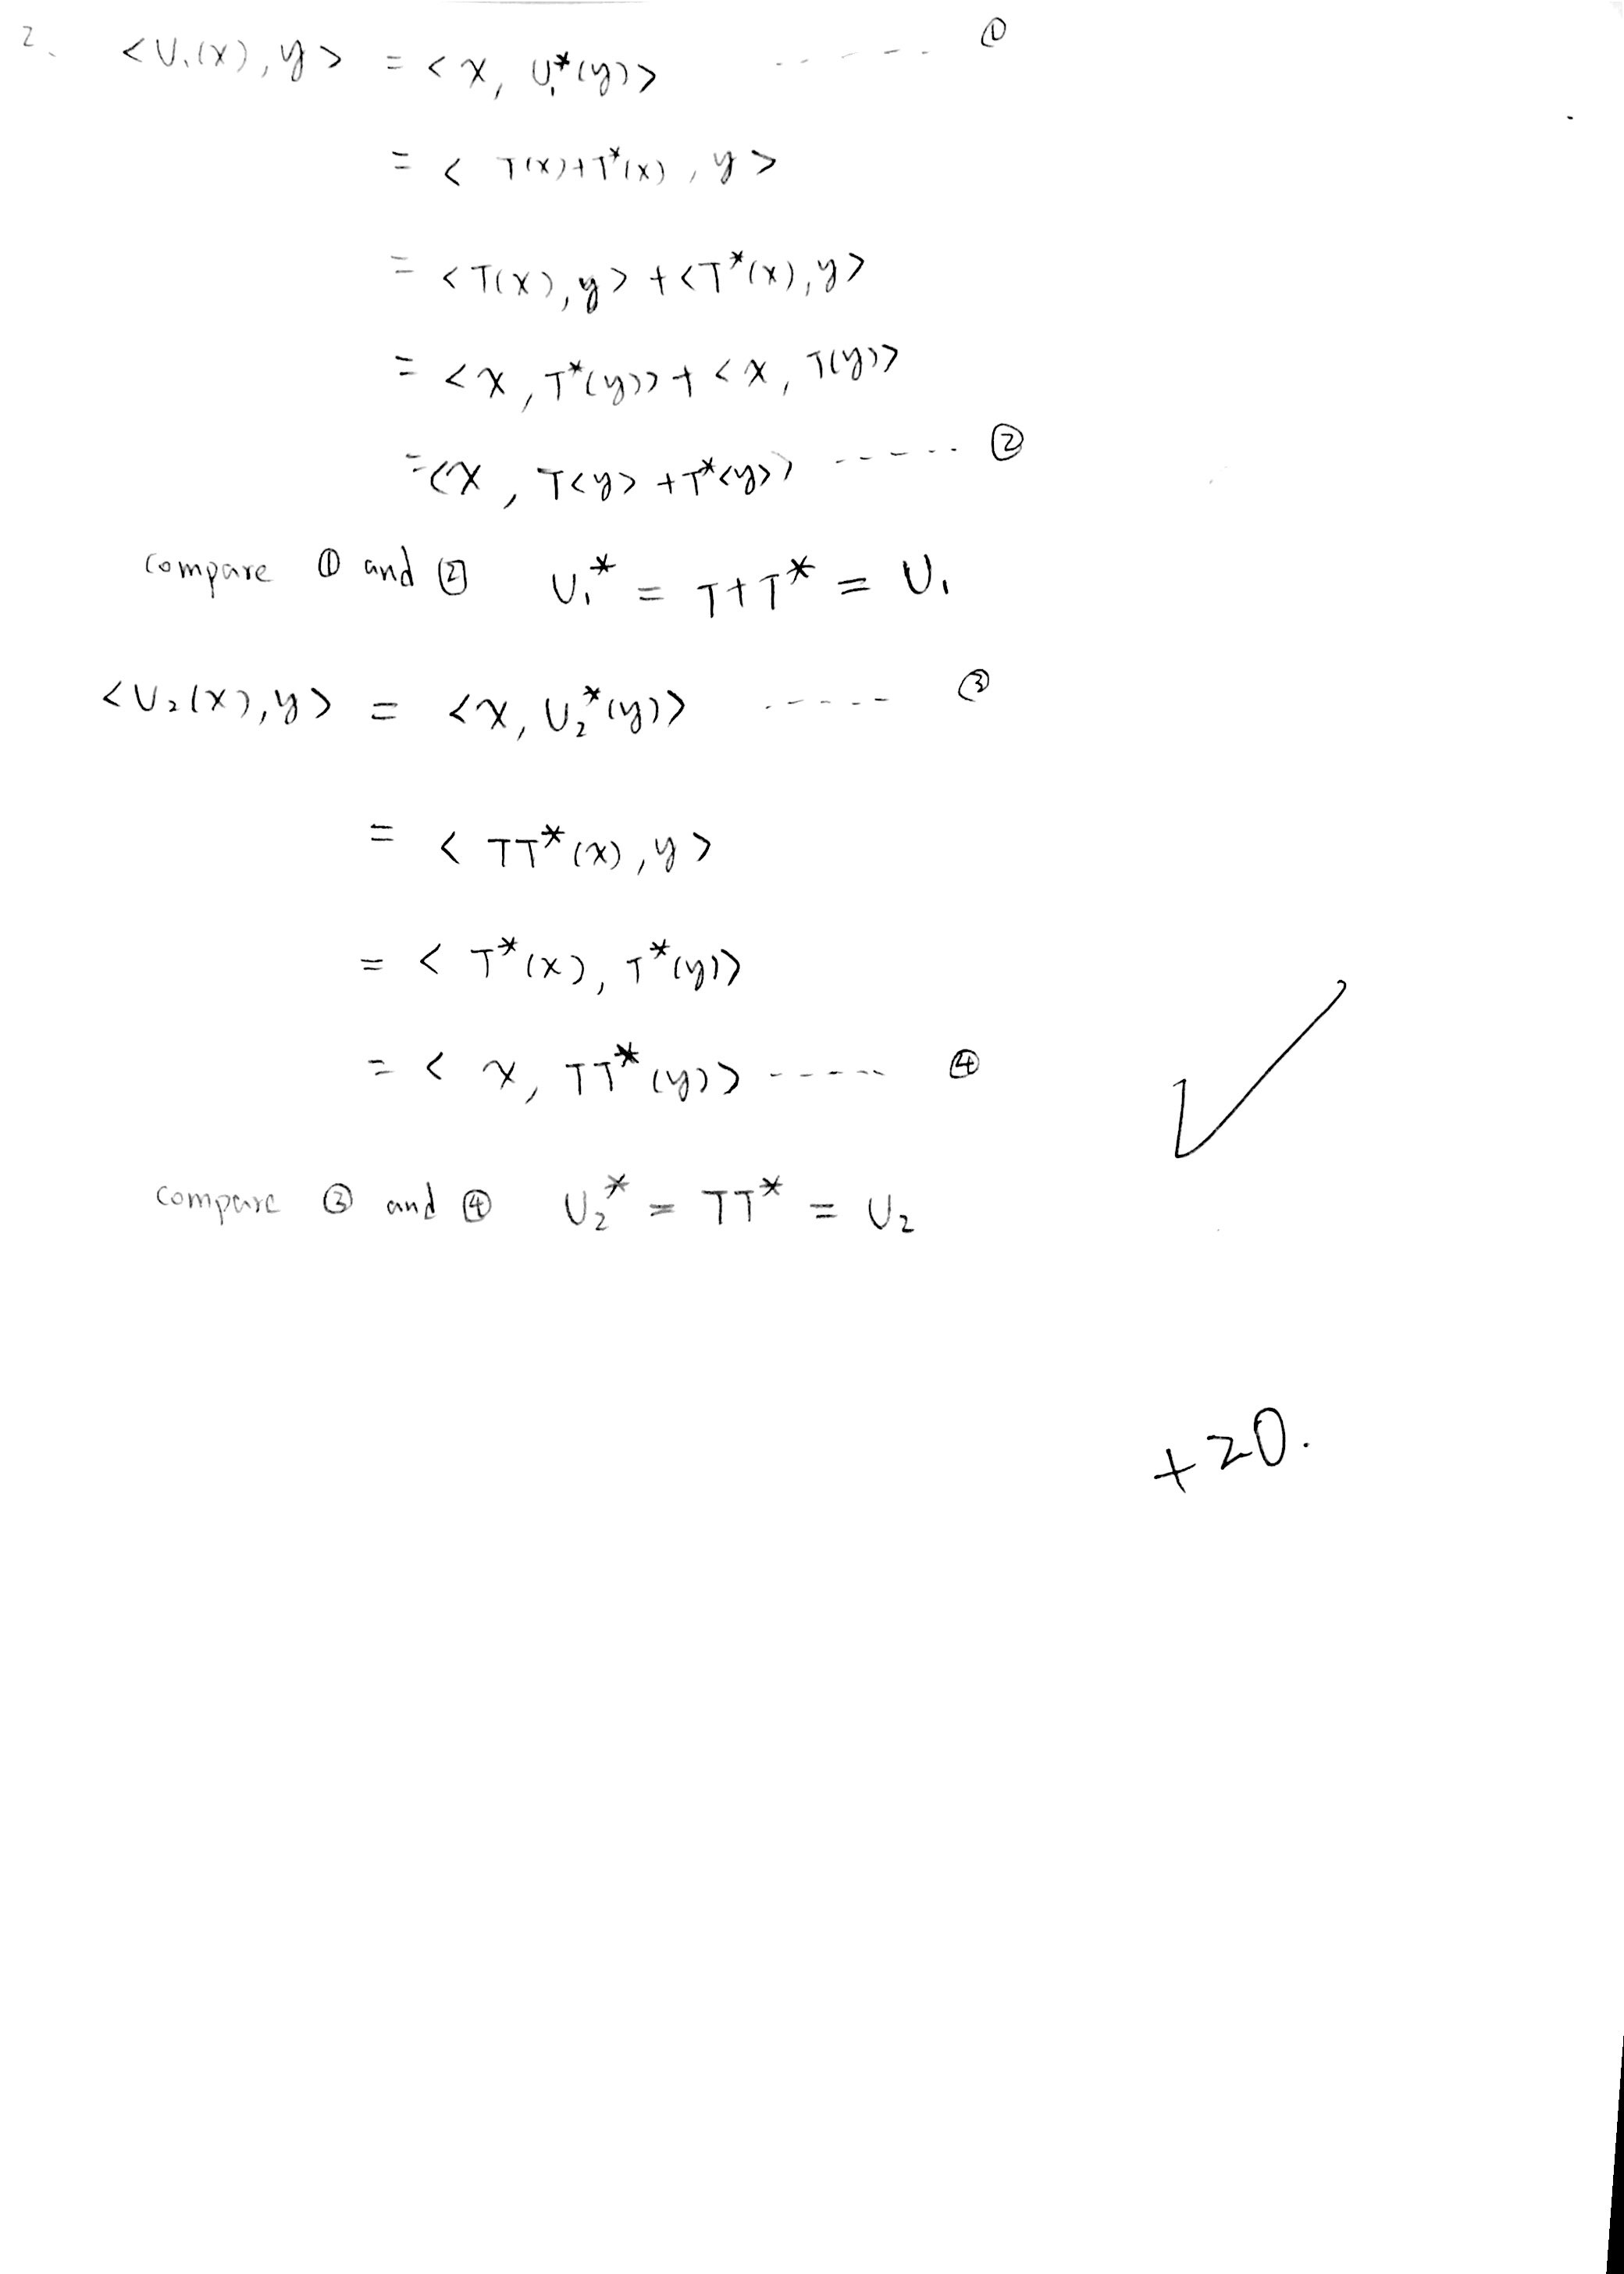 2. <U₁(x), y> = <x, U₁*(y)> ------ ①
= < T(x)+T*(x), y >
= <T(x), y> + <T*(x), y>
= <x, T*(y)> + <x, T(y)>
= <x, T<y> + T*<y>> ------ ②
compare ① and ② U₁* = T+T* = U₁
<U₂(x), y> = <x, U₂*(y)> ------ ③
= < TT*(x), y >
= < T*(x), T*(y)>
= < x, TT*(y)> ------ ④
compare ③ and ④ U₂* = TT* = U₂
+20.